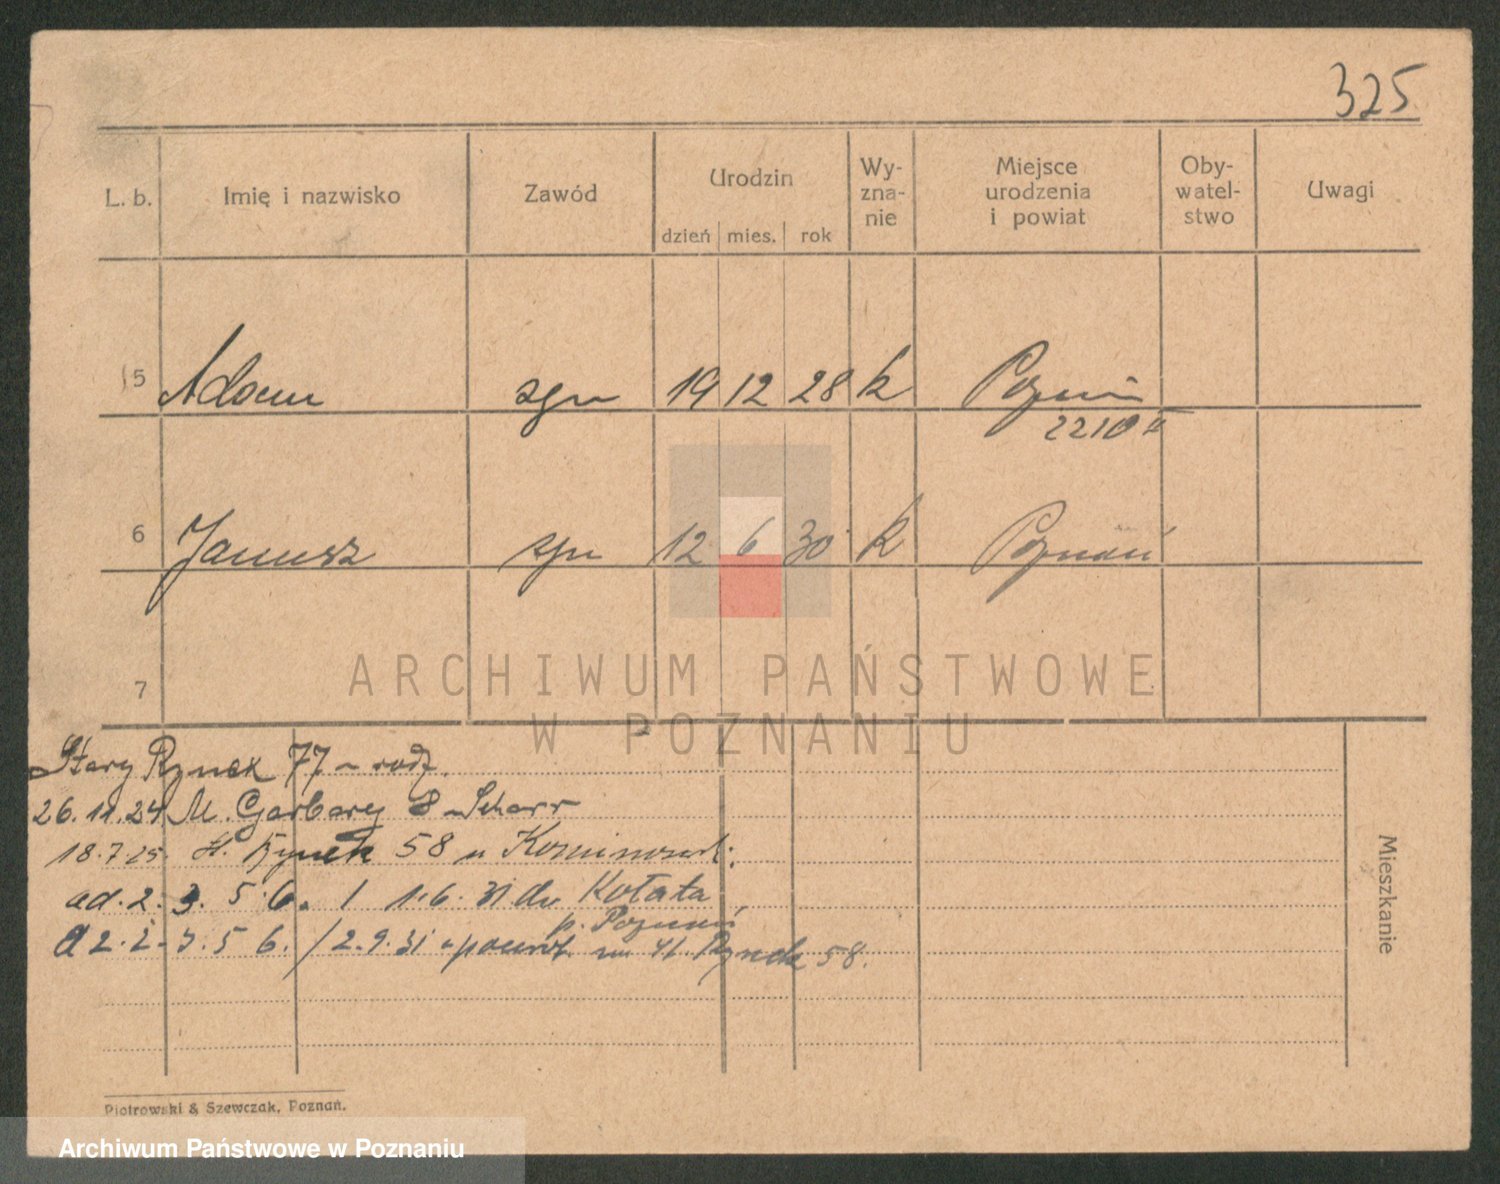 325
L. b. Imię i nazwisko Zawód Urodzin dzień mies. rok Wy-zna-nie Miejsce urodzenia i powiat Oby-watel-stwo Uwagi
5 Adam syn 19 12 28 k Poznań
2210 II
6 Janusz syn 12 6 30 k Poznań
7
ARCHIWUM PAŃSTWOWE
W POZNANIU
Stary Rynek 77 - rodz.
26.11.24 M. Garbary 8 - Scharr
18.7.25 St. Rynek 58 u
ad. 2. 3. 5. 6. 1.6.31 do Kołata
p. Poznań
2. 3. 5 6. / 2.9.31 powrót St. Rynek 58.
Mieszkanie
Piotrowski & Szewczak, Poznań.
Archiwum Państwowe w Poznaniu